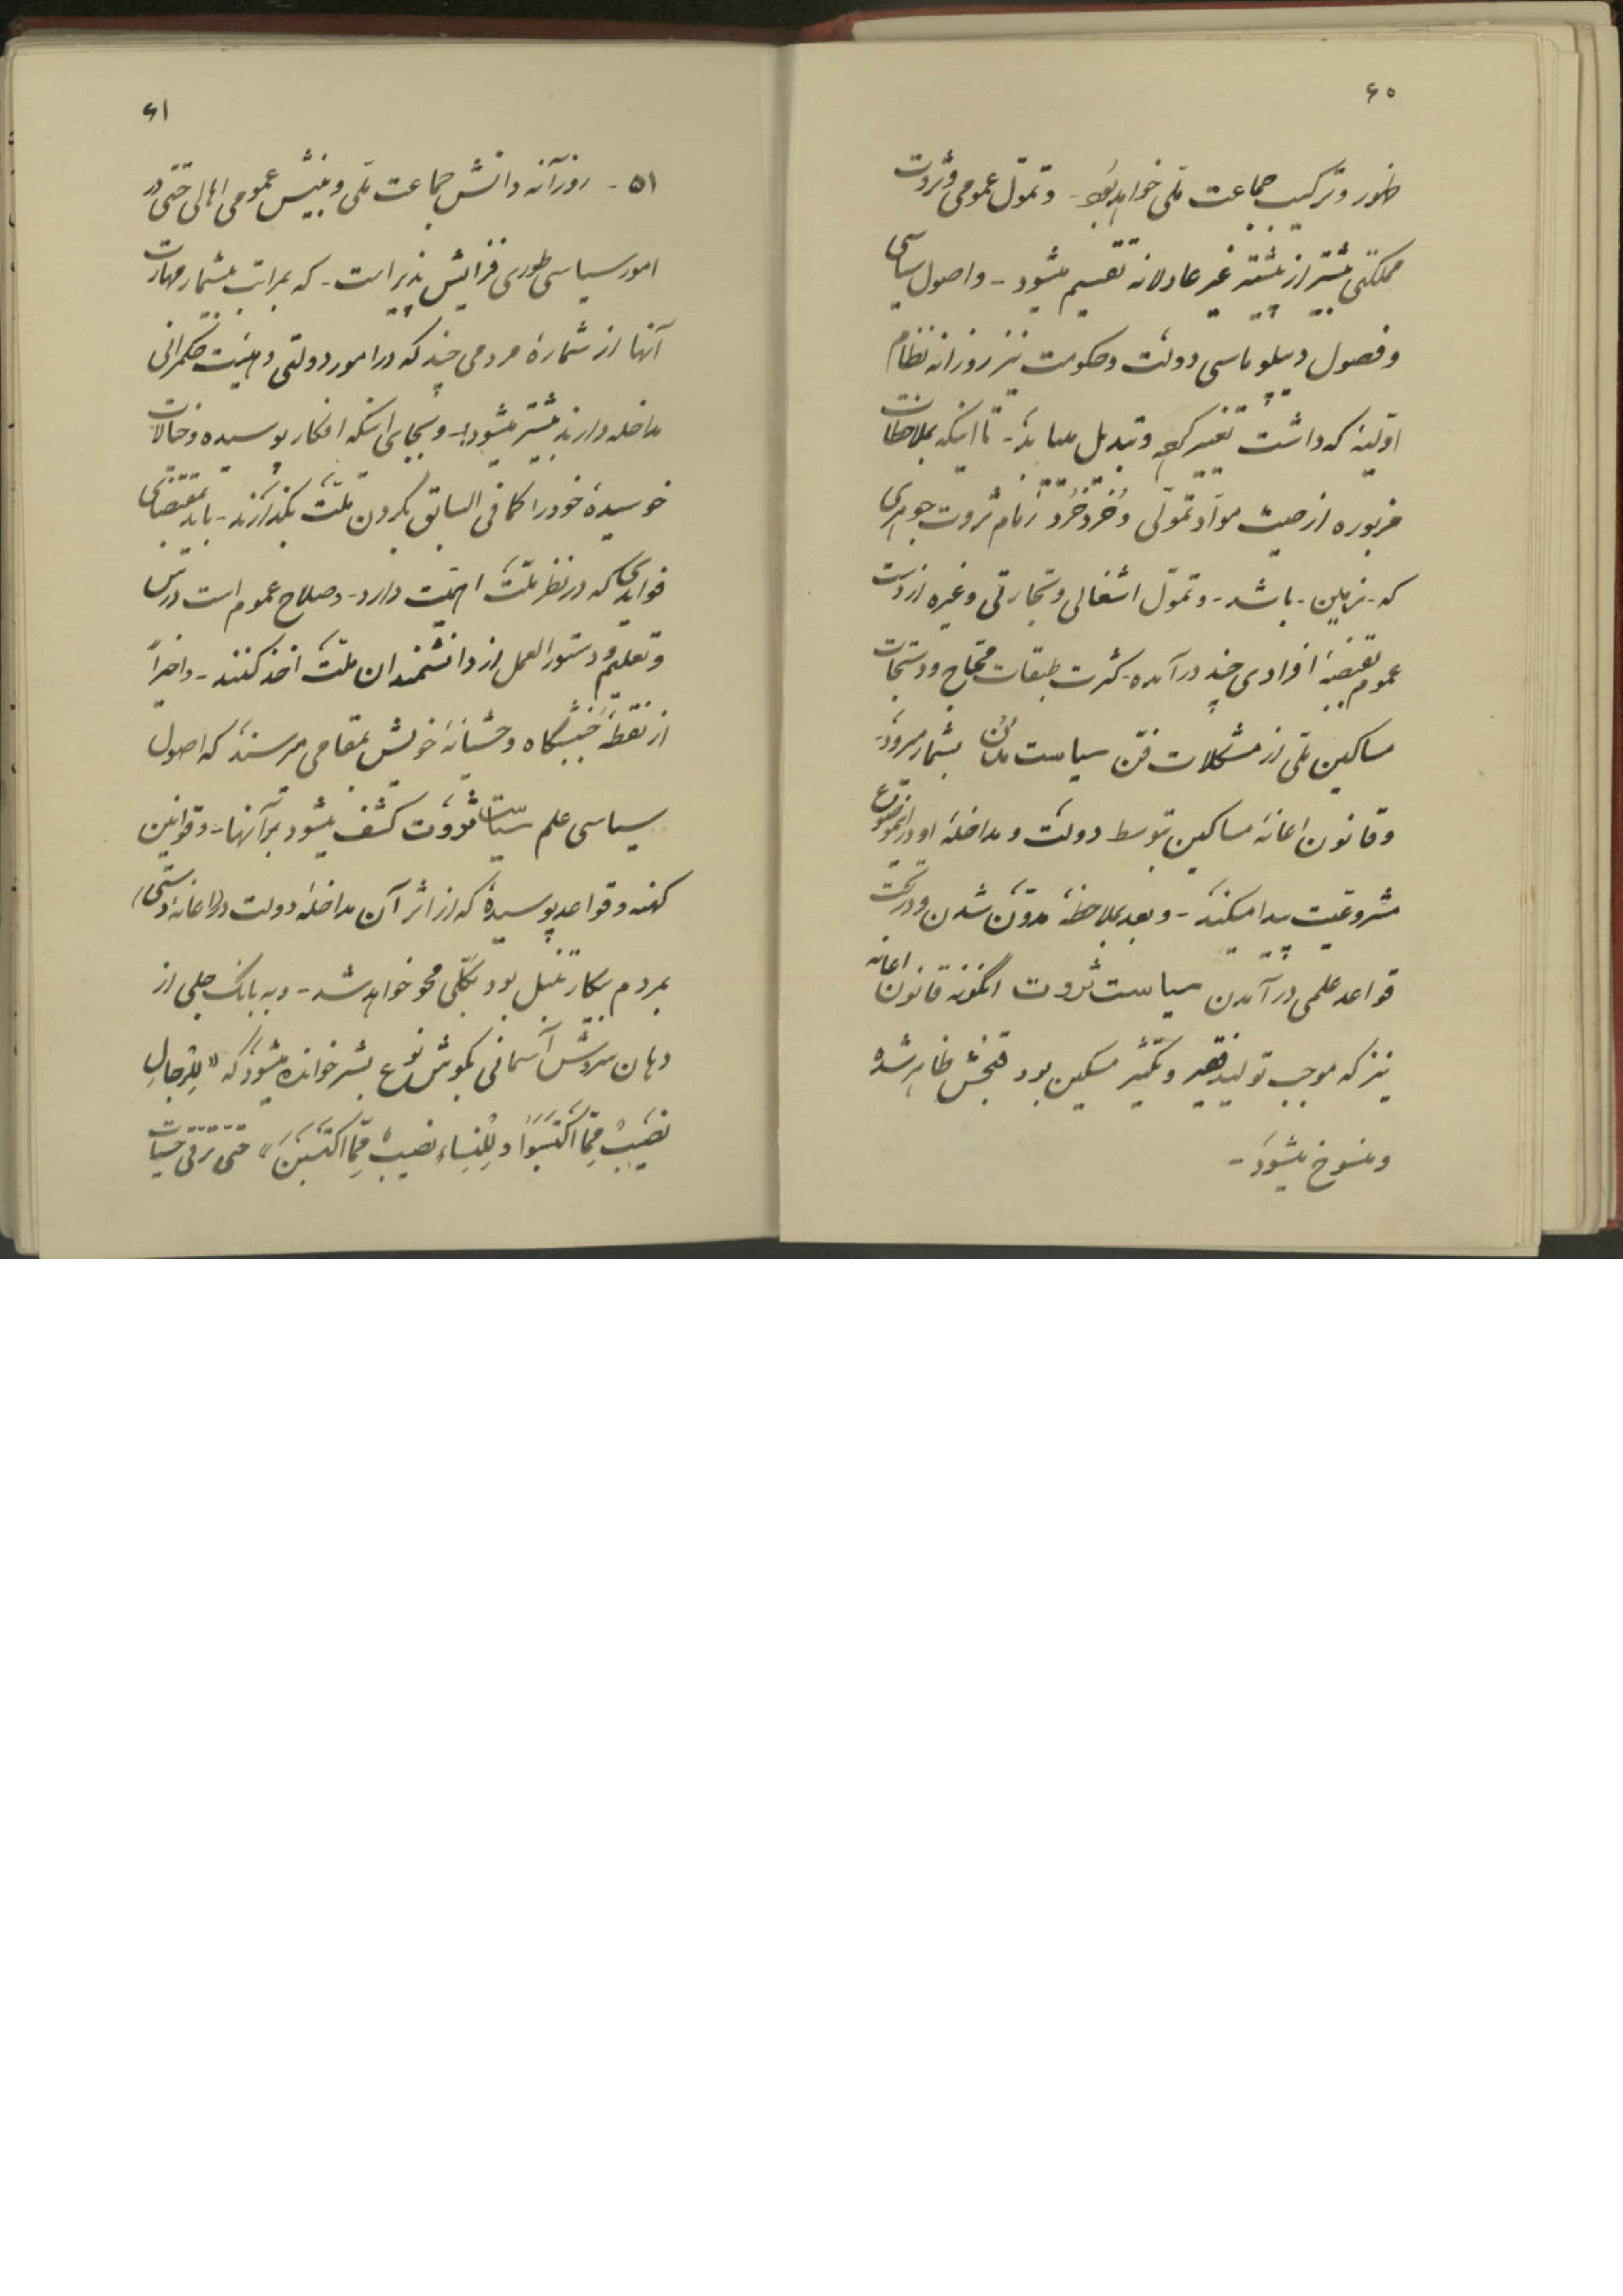 ۶۰
ظهور و ترکیب جماعت ملی خواهد بود - و تموّل عمومی و ثروت
مملکتی بیشتر از پیشتر غیر عادلانه تقسیم میشود - و اصول سیاسی
و فصول دیپلوماسی دولت و حکومت نیز روزانه نظام
اوّلیّه که داشت تغییر کرده و تبدیل مییابد - تا اینکه بملاحظات
مزبوره از حیث موادّ تموّلی و خرد خرد زمام ثروت جوهری
که - زمین - باشد - و تموّل اشغالی و تجارتی و غیره از دست
عموم بقبضهٔ افرادی چند درآمده - کثرت طبقات محتاج و دستجات
مساکین ملی از مشکلات فنّ سیاست مدن بشمار میرود -
و قانون اعانهٔ مساکین بتوسط دولت و مداخلهٔ او در اینموضوع
مشروعیّت پیدا میکند - و بعد بملاحظهٔ مدوّن شدن و در تحت
قواعد علمی درآمدن سیاست ثروت اینگونه قانون اعانه
نیز که موجب تولید فقیر و تکثیر مسکین بود قبحش ظاهر شده
و منسوخ میشود -
۶۱
۵۱ - روزانه دانش جماعت ملی و بینش عمومی اهالی حتی در
امور سیاسی طوری فزایش پذیر است - که بمراتب بیشمار مهارت
آنها از شمارهٔ مردمی چند که در امور دولتی و هیئت حکمرانی
مداخله دارند بیشتر میشود - و بجای اینکه افکار پوسیده و خیالات
خوسیدهٔ خود را کما فی السابق بگردن ملّت بگذارند - باید بمقتضای
فوایدی که در نظر ملّت اهمیّت دارد - و صلاح عموم است درس
و تعلیم و دستور العمل از دانشمندان ملّت اخذ کنند - و اخیراً
از نقطهٔ وحشیانهٔ خویش بمقامی میرسند که اصول
سیاسی علم سیاست ثروت کشف میشود بر آنها - و قوانین
کهنه و قواعد پوسیدهٔ که از اثر آن مداخلهٔ دولت در (اعانهٔ دستی)
بمردم بیکار تنبل بود بکلّی محو خواهد شد - و به بانگ جلی از
دهان سروش آسمانی بگوش نوع بشر خوانده میشود که «لِلرِّجالِ
نَصیبٌ مِمَّا اکْتَسَبُوا وَ لِلنِّساءِ نَصیبٌ مِمَّا اکْتَسَبْنَ» حتی ترقی حیات